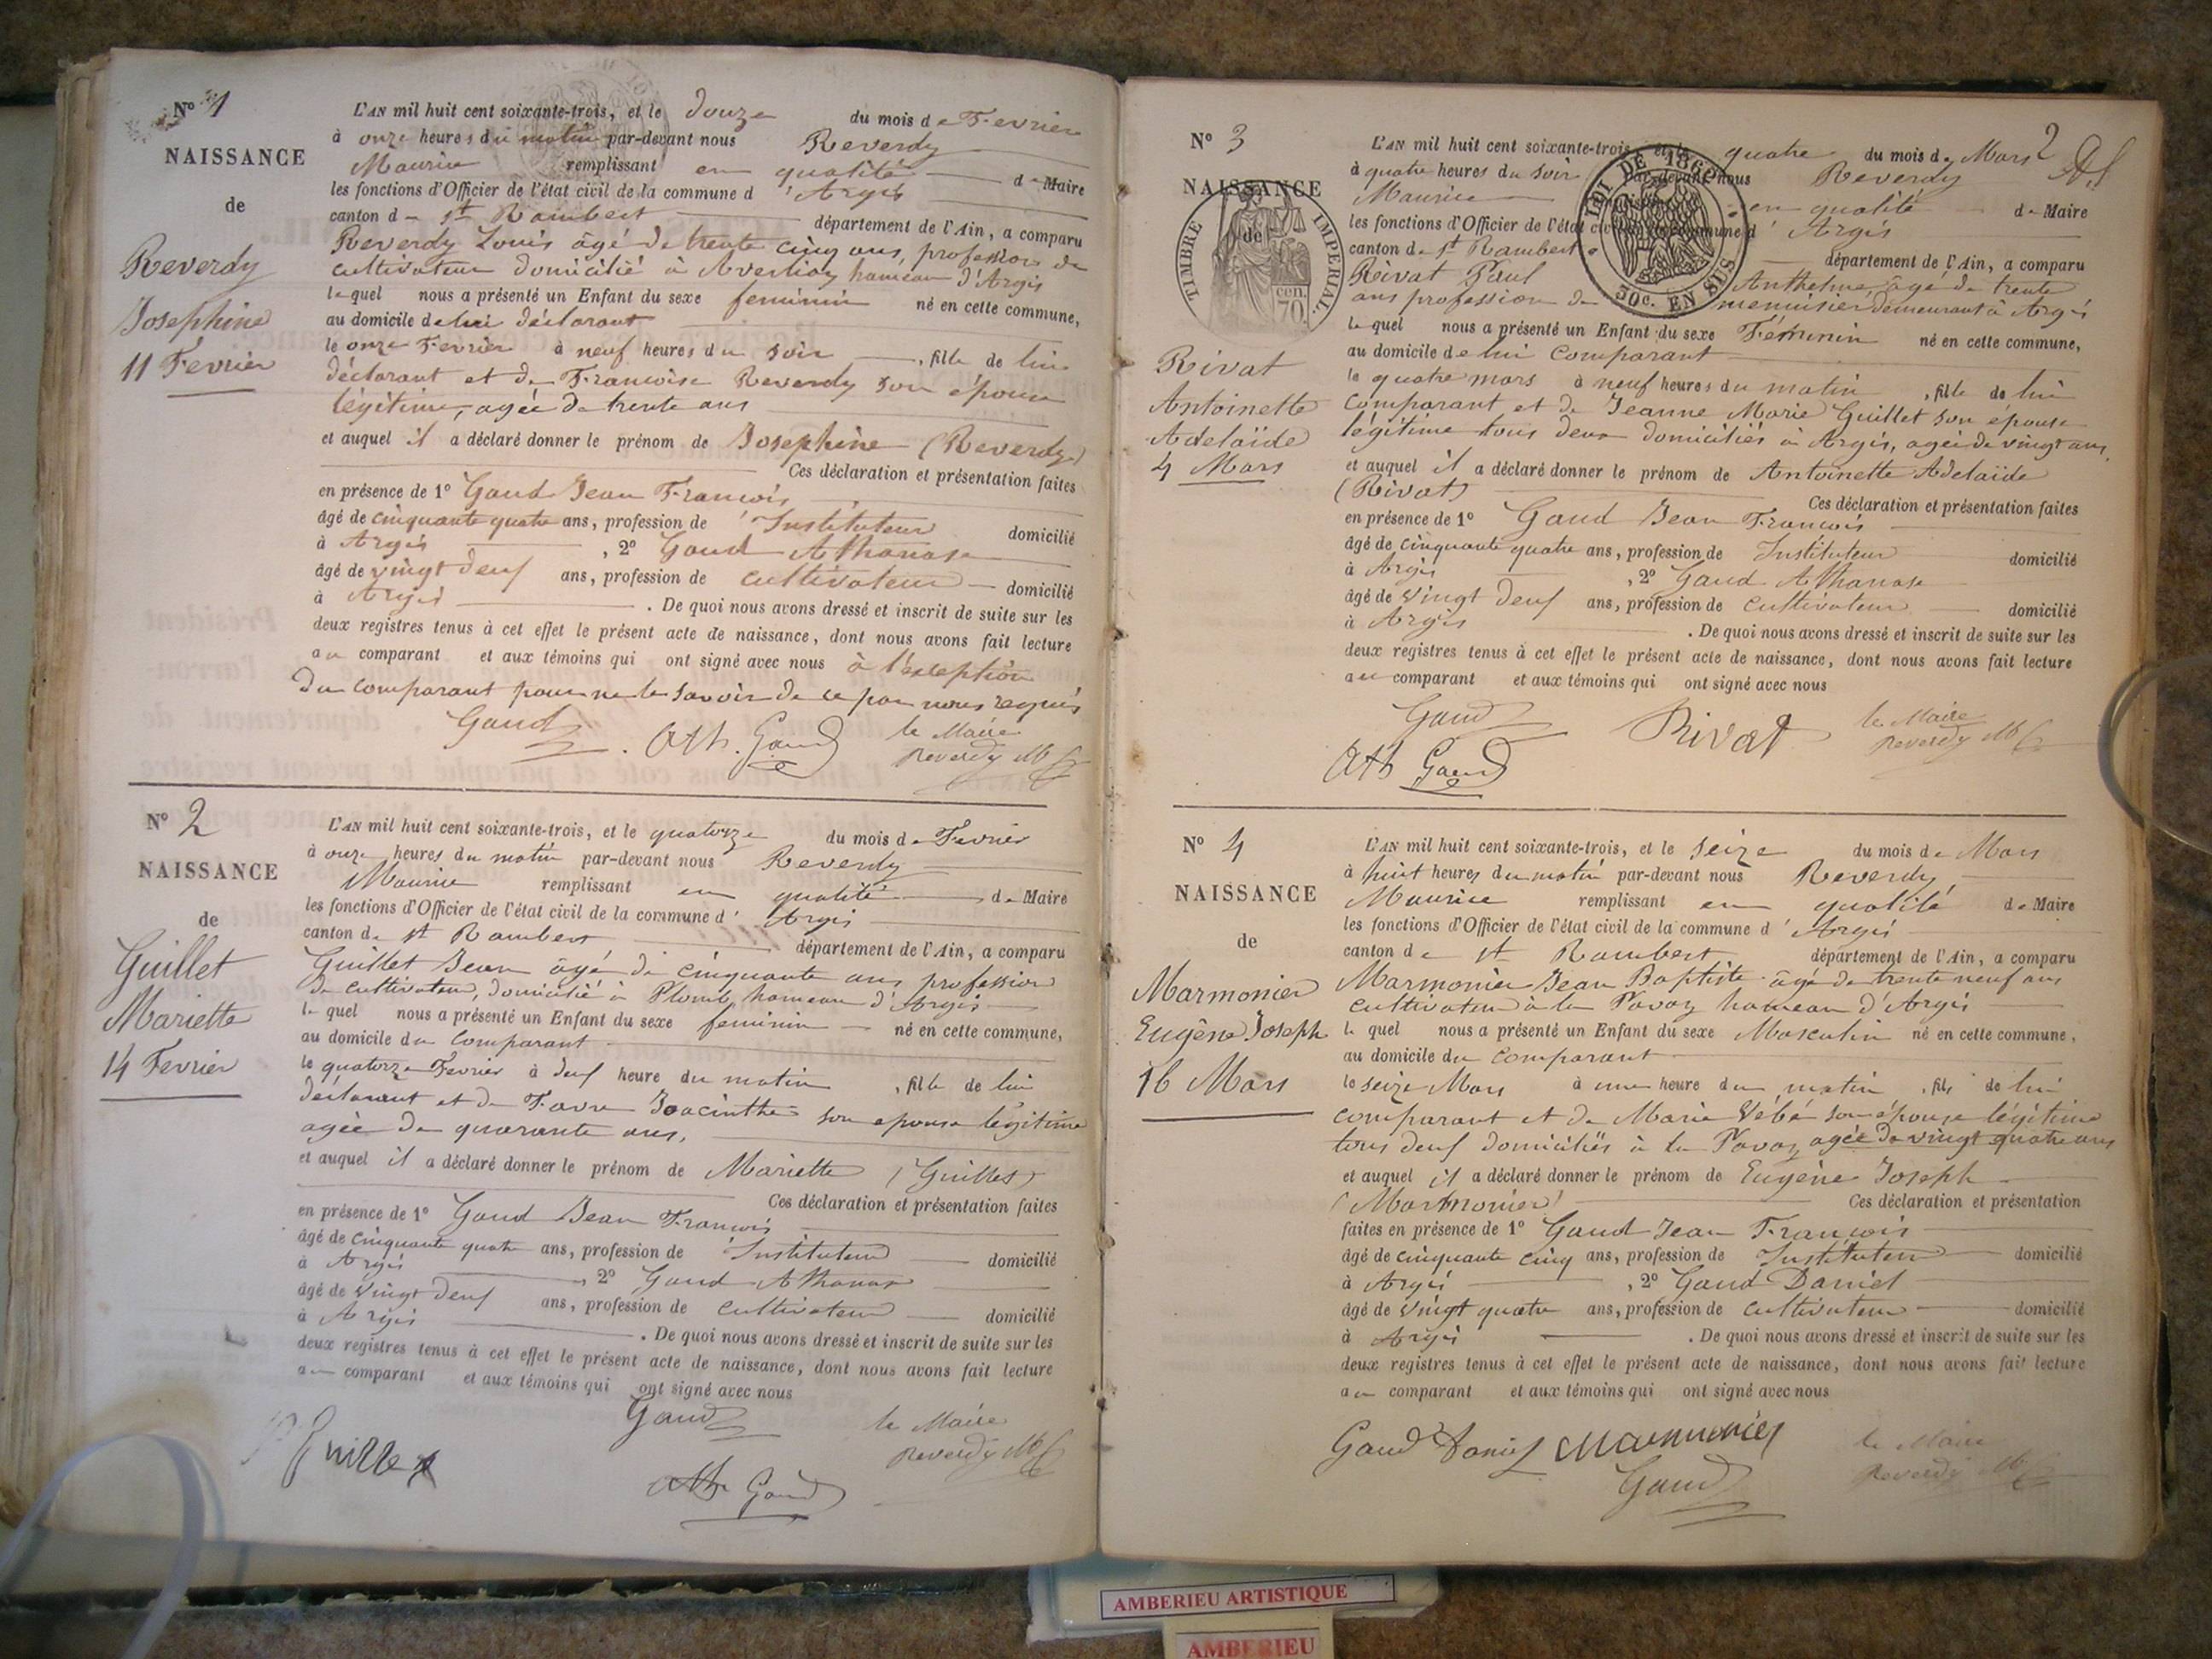 N° 1
NAISSANCE
de
Reverdy
Josephine
11 Fevrier
L'AN mil huit cent soixante-trois, et le douze du mois de Fevrier
à onze heures du matin par-devant nous Reverdy
Maurice remplissant en qualité de Maire
les fonctions d'Officier de l'état civil de la commune d'Argis
canton de St Rambert département de l'Ain, a comparu
Reverdy Louis âgé de trente cinq ans, profession de
cultivateur domicilié à Averliaz hameau d'Argis
lequel nous a présenté un Enfant du sexe feminin né en cette commune,
au domicile de lui déclarant
le onze Fevrier à neuf heures du soir , fille de lui
déclarant et de Francoise Reverdy son épouse
légitime, agée de trente ans
et auquel il a déclaré donner le prénom de Josephine (Reverdy)
Ces déclaration et présentation faites
en présence de 1° Gaud Jean Francois
âgé de cinquante quatre ans, profession de Instituteur domicilié
à Argis , 2° Gaud Athanase
âgé de vingt deuf ans, profession de cultivateur domicilié
à Argis . De quoi nous avons dressé et inscrit de suite sur les
deux registres tenus à cet effet le présent acte de naissance, dont nous avons fait lecture
au comparant et aux témoins qui ont signé avec nous à l'exception
du comparant pour ne le savoir de ce par nous requis
Gaud Ath. Gaud le Maire
Reverdy M
N° 2
NAISSANCE
de
Guillet
Mariette
14 Fevrier
L'AN mil huit cent soixante-trois, et le quatorze du mois de Fevrier
à onze heures du matin par-devant nous Reverdy
Maurice remplissant en qualité de Maire
les fonctions d'Officier de l'état civil de la commune d'Argis
canton de St Rambert département de l'Ain, a comparu
Guillet Jean âgé de cinquante ans profession
de cultivateur, domicilié à Plomb hameau d'Argis
lequel nous a présenté un Enfant du sexe feminin né en cette commune,
au domicile du comparant
le quatorze Fevrier à deuf heure du matin , fille de lui
déclarant et de Favre Joacinthe son epouse légitime
agée de quarante ans,
et auquel il a déclaré donner le prénom de Mariette (Guillet)
Ces déclaration et présentation faites
en présence de 1° Gaud Jean Francois
âgé de cinquante quatre ans, profession de Instituteur domicilié
à Argis , 2° Gaud Athanase
âgé de vingt deuf ans, profession de cultivateur domicilié
à Argis . De quoi nous avons dressé et inscrit de suite sur les
deux registres tenus à cet effet le présent acte de naissance, dont nous avons fait lecture
au comparant et aux témoins qui ont signé avec nous
Gaud le Maire
Guillet Reverdy M
Ath Gaud
2
N° 3
NAISSANCE
de
TIMBRE IMPERIAL
cen.
70.
LOI DE 1862
30c. EN SUS
Rivat
Antoinette
Adelaïde
4 Mars
L'AN mil huit cent soixante-trois, et le quatre du mois de Mars
à quatre heures du soir par-devant nous Reverdy
Maurice remplissant en qualité de Maire
les fonctions d'Officier de l'état civil de la commune d'Argis
canton de St Rambert département de l'Ain, a comparu
Rivat Paul Anthelme âgé de trente
ans profession de menuisier demeurant à Argis
lequel nous a présenté un Enfant du sexe Feminin né en cette commune,
au domicile de lui comparant
le quatre mars à neuf heures du matin , fille de lui
comparant et de Jeanne Marie Guillet son épouse
légitime tous deux domiciliés à Argis, agée de vingt ans,
et auquel il a déclaré donner le prénom de Antoinette Adelaïde
(Rivat) Ces déclaration et présentation faites
en présence de 1° Gaud Jean Francois
âgé de cinquante quatre ans, profession de Instituteur domicilié
à Argis , 2° Gaud Athanase
âgé de vingt deuf ans, profession de cultivateur domicilié
à Argis . De quoi nous avons dressé et inscrit de suite sur les
deux registres tenus à cet effet le présent acte de naissance, dont nous avons fait lecture
au comparant et aux témoins qui ont signé avec nous
Gaud Rivat le Maire
Ath Gaud Reverdy M
N° 4
NAISSANCE
de
Marmonier
Eugêne Joseph
16 Mars
L'AN mil huit cent soixante-trois, et le seize du mois de Mars
à huit heures du matin par-devant nous Reverdy
Maurice remplissant en qualité de Maire
les fonctions d'Officier de l'état civil de la commune d'Argis
canton de St Rambert département de l'Ain, a comparu
Marmonier Jean Baptiste âgé de trente neuf ans
cultivateur à la Pavaz hameau d'Argis
lequel nous a présenté un Enfant du sexe Masculin né en cette commune,
au domicile du comparant
le seize Mars à une heure du matin , fils de lui
comparant et de Marie Bébé son épouse légitime
tous deuf domiciliës à la Pavaz agée de vingt quatre ans
et auquel il a déclaré donner le prénom de Eugène Joseph
(Marmonier) Ces déclaration et présentation
faites en présence de 1° Gaud Jean Francois
âgé de cinquante cinq ans, profession de Instituteur domicilié
à Argis , 2° Gaud Daniel
âgé de vingt quatre ans, profession de cultivateur domicilié
à Argis . De quoi nous avons dressé et inscrit de suite sur les
deux registres tenus à cet effet le présent acte de naissance, dont nous avons fait lecture
au comparant et aux témoins qui ont signé avec nous
Gaud Daniel Marmonier le Maire
Gaud Reverdy M
AMBERIEU ARTISTIQUE
AMBERIEU